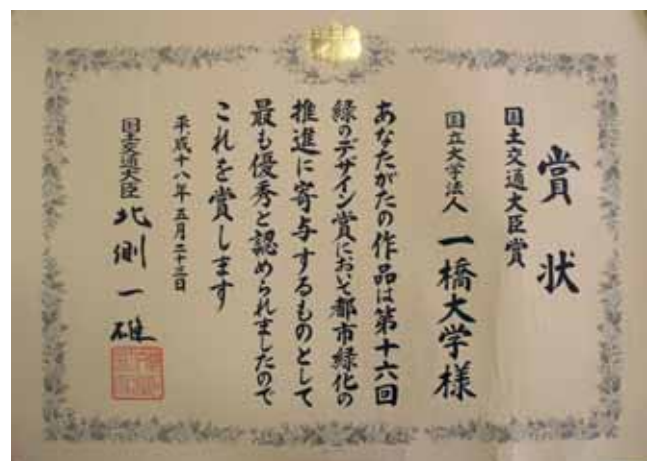 賞状
国土交通大臣賞
国立大学法人 一橋大学様
あなたがたの作品は第十六回
緑のデザイン賞において都市緑化の
推進に寄与するものとして
最も優秀と認められましたので
これを賞します
平成十八年五月二十三日
国土交通大臣 北側一雄